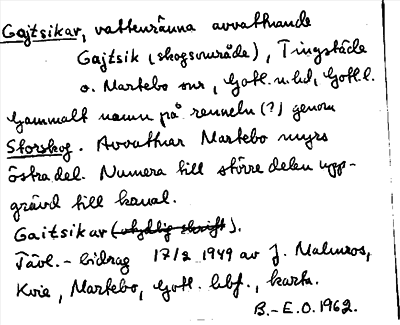 Gajtsikar, vattenränna avvattnande
Gajtsik (skogsområde), Tingstäde
o. Martebo snr, Gotl. n. hd, Gotl. l.
Gammalt namn på renneln (?) genom
Storskog. Avvattnar Martebo myrs
östra del. Numera till större delen upp-
grävd till kanal.
Gaitsikar (otydlig skrift).
Tävl.-bidrag 17/2 1949 av J. Malmros,
Kvie, Martebo, Gotl. hbf., karta.
B.-E.O. 1962.